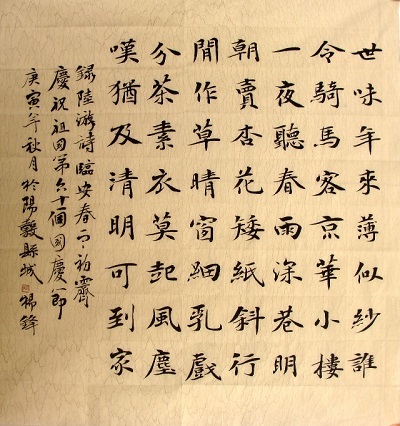 世味年來薄似紗誰
令騎馬客京華小樓
一夜聽春雨深巷明
朝賣杏花矮紙斜行
閒作草晴窗細乳戲
分茶素衣莫起風塵
嘆猶及清明可到家
錄陸游詩臨安春雨初霽
慶祝祖国第六十個国慶節
庚寅年秋月於陽穀縣城 楊鋒